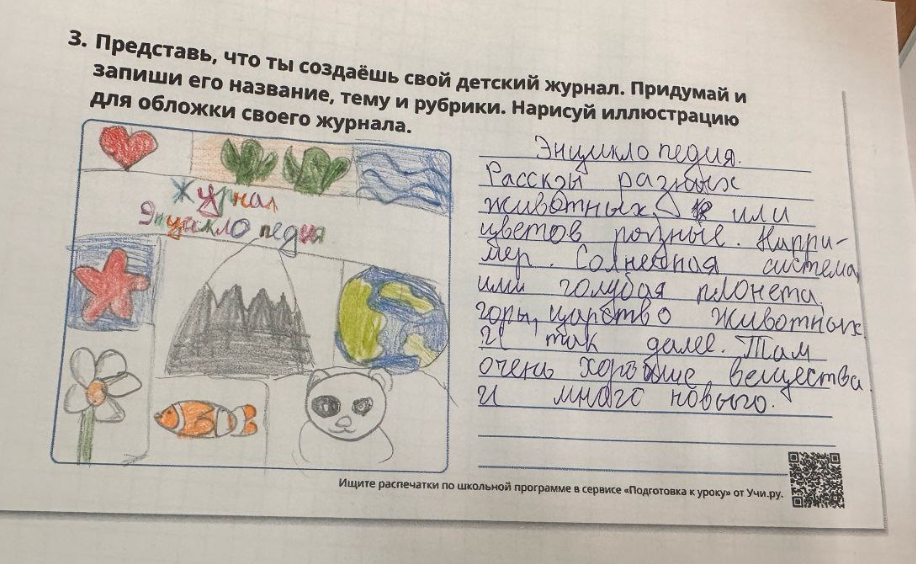 3. Представь, что ты создаёшь свой детский журнал. Придумай и
запиши его название, тему и рубрики. Нарисуй иллюстрацию
для обложки своего журнала.
Журнал
Энцикло педия
Энцикло педия.
Расскзы разных
животных, или
цветов разные. Напри-
мер. Солнечная система,
или голубая планета.
горы, царство животных.
И так далее. Там
очень хорошие вещества.
И много нового.
Ищите распечатки по школьной программе в сервисе «Подготовка к уроку» от Учи.ру.